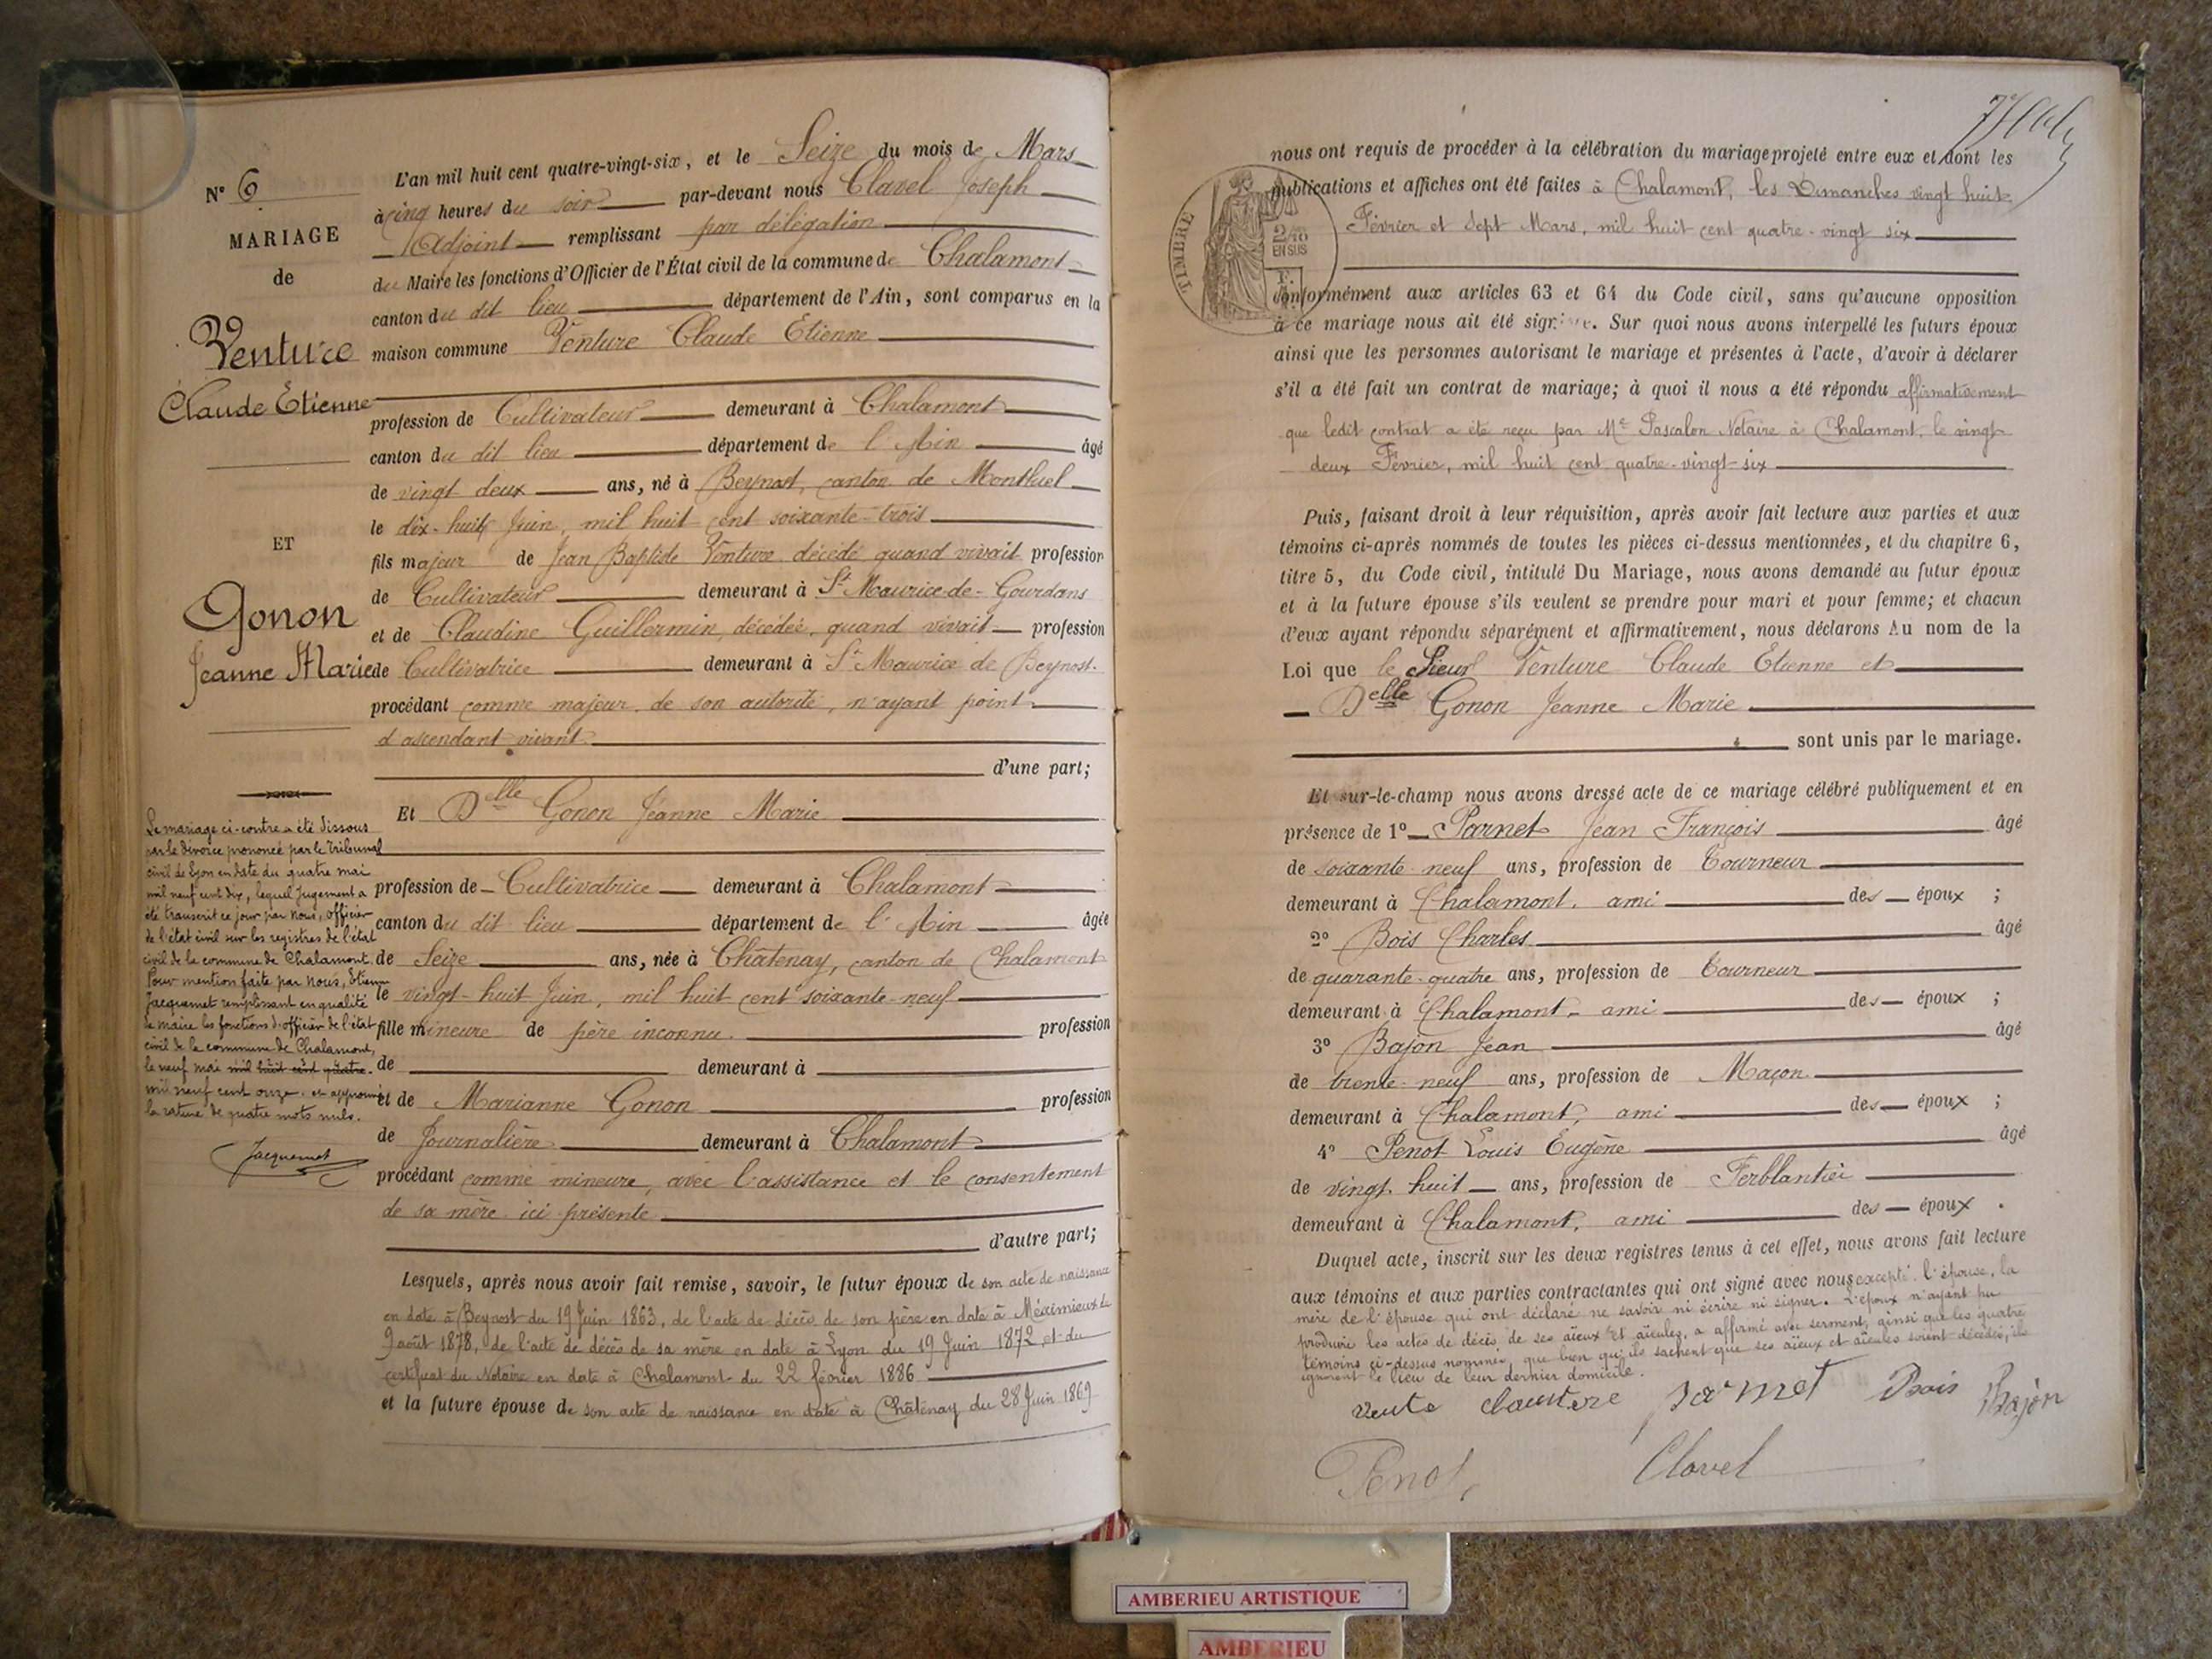 N° 6
MARIAGE
de
Venture
Claude Etienne
ET
Gonon
Jeanne Marie
Le mariage ci-contre a été dissous
par le divorce prononcé par le Tribunal
civil de Lyon en date du quatre mai
mil neuf cent dix, lequel jugement a
été transcrit ce jour par nous, officier
de l'état civil sur les registres de l'état
civil de la commune de Chalamont.
Pour mention faite par Nous, Etienne
Jacquemet remplissant en qualité
de maire les fonctions d'officier de l'état
civil de la commune de Chalamont,
le neuf mai mil huit cent quatre.
mil neuf cent onze. et approuvé
la rature de quatre mots nuls.
Jacquemet
L'an mil huit cent quatre-vingt-six, et le Seize du mois de Mars
à cinq heures du soir par-devant nous Clavel Joseph
Adjoint remplissant par délégation
du Maire les fonctions d'Officier de l'État civil de la commune de Chalamont
canton du dit lieu département de l'Ain, sont comparus en la
maison commune Venture Claude Etienne
profession de Cultivateur demeurant à Chalamont
canton du dit lieu département de l'Ain âgé
de vingt deux ans, né à Beynost, canton de Montluel
le dix-huit Juin, mil huit cent soixante-trois
fils majeur de Jean Baptiste Venture décédé quand vivait profession
de Cultivateur demeurant à St Maurice-de-Gourdans
et de Claudine Guillermin, décédée, quand vivait profession
de Cultivatrice demeurant à St Maurice de Beynost.
procédant comme majeur de son autorité, n'ayant point
d'ascendant vivant
d'une part;
Et Delle Gonon Jeanne Marie
profession de Cultivatrice demeurant à Chalamont
canton du dit lieu département de l'Ain âgée
de Seize ans, née à Châtenay, canton de Chalamont
le vingt-huit Juin, mil huit cent soixante-neuf
fille mineure de père inconnu. profession
de demeurant à
et de Marianne Gonon profession
de Journalière demeurant à Chalamont
procédant comme mineure, avec l'assistance et le consentement
de sa mère ici présente
d'autre part;
Lesquels, après nous avoir fait remise, savoir, le futur époux de son acte de naissance
en date à Beynost du 19 Juin 1863, de l'acte de décès de son père en date à Méximieux du
9 août 1878, de l'acte de décès de sa mère en date à Lyon du 19 Juin 1872, et du
certificat du Notaire en date à Chalamont du 22 février 1886
et la future épouse de son acte de naissance en date à Châtenay du 28 Juin 1869
nous ont requis de procéder à la célébration du mariage projeté entre eux et dont les
publications et affiches ont été faites à Chalamont, les Dimanches vingt huit
Février et Sept Mars, mil huit cent quatre-vingt six
TIMBRE
2/10
EN SUS
F.
conformément aux articles 63 et 64 du Code civil, sans qu'aucune opposition
à ce mariage nous ait été signifiée. Sur quoi nous avons interpellé les futurs époux
ainsi que les personnes autorisant le mariage et présentes à l'acte, d'avoir à déclarer
s'il a été fait un contrat de mariage; à quoi il nous a été répondu affirmativement
que ledit contrat a été reçu par Me Pascalon Notaire à Chalamont, le vingt
deux Février, mil huit cent quatre-vingt-six
Puis, faisant droit à leur réquisition, après avoir fait lecture aux parties et aux
témoins ci-après nommés de toutes les pièces ci-dessus mentionnées, et du chapitre 6,
titre 5, du Code civil, intitulé Du Mariage, nous avons demandé au futur époux
et à la future épouse s'ils veulent se prendre pour mari et pour femme; et chacun
d'eux ayant répondu séparément et affirmativement, nous déclarons Au nom de la
Loi que le Sieur Venture Claude Etienne et
Delle Gonon Jeanne Marie
sont unis par le mariage.
Et sur-le-champ nous avons dressé acte de ce mariage célébré publiquement et en
présence de 1° Parnet Jean François âgé
de soixante-neuf ans, profession de Tourneur
demeurant à Chalamont, ami des époux ;
2° Bois Charles âgé
de quarante-quatre ans, profession de Tourneur
demeurant à Chalamont, ami des époux ;
3° Bajon Jean âgé
de trente-neuf ans, profession de Maçon
demeurant à Chalamont, ami des époux ;
4° Penot Louis Eugène âgé
de vingt-huit ans, profession de Ferblantier
demeurant à Chalamont, ami des époux .
Duquel acte, inscrit sur les deux registres tenus à cet effet, nous avons fait lecture
aux témoins et aux parties contractantes qui ont signé avec nous excepté l'épouse, la
mère de l'épouse qui ont déclaré ne savoir ni écrire ni signer. L'époux n'ayant pu
produire les actes de décès de ses aïeux et aïeules, a affirmé avec serment, ainsi que les quatre
témoins ci-dessus nommés, que bien qu'ils sachent que ses aïeux et aïeules soient décédés, ils
ignorent le lieu de leur dernier domicile.
Bois Bajon
Penot
Clavel
AMBERIEU ARTISTIQUE
AMBERIEU